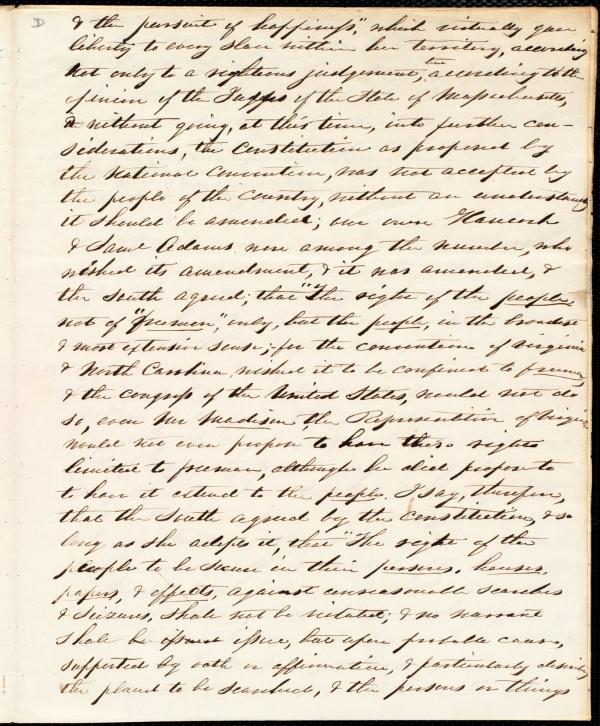 D
& the pursuit of happiness," which virtually gave
liberty to every slave within her territory, according
not only to a righteous judgement, but according to the
opinion of the Judges of the State of Massachusetts,
& without going, at this time, into further con-
siderations, the Constitution as proposed by
the National Convention, was not accepted by
the people of the Country, without an understanding
it should be amended; our own Hancock
& Saml Adams were among the number, who
wished its amendment, & it was amended, &
the South agreed; that "The right of the people,
not of "freemen", only, but the people, in the broadest
& most extensive sense; for the convention of Virginia
& North Carolina wished it to be confined to freemen,
& the congress of the United States, would not do
so, even Mr Madison the Representative of Virginia
would not even propose to have these rights
limited to freemen, although he did propose to
to have it extend to the people. I say, therefore,
that the South agreed by the Constitution, & so
long as she adopts it, that "The right of the
people to be secure in their persons, houses,
papers, & effects, against unreasonable searches
& seizures, shall not be violated; & no warrant
shall be issue, but upon probable cause,
supported by oath or affirmation, & particularly describing
the placed to be searched, & the persons or things